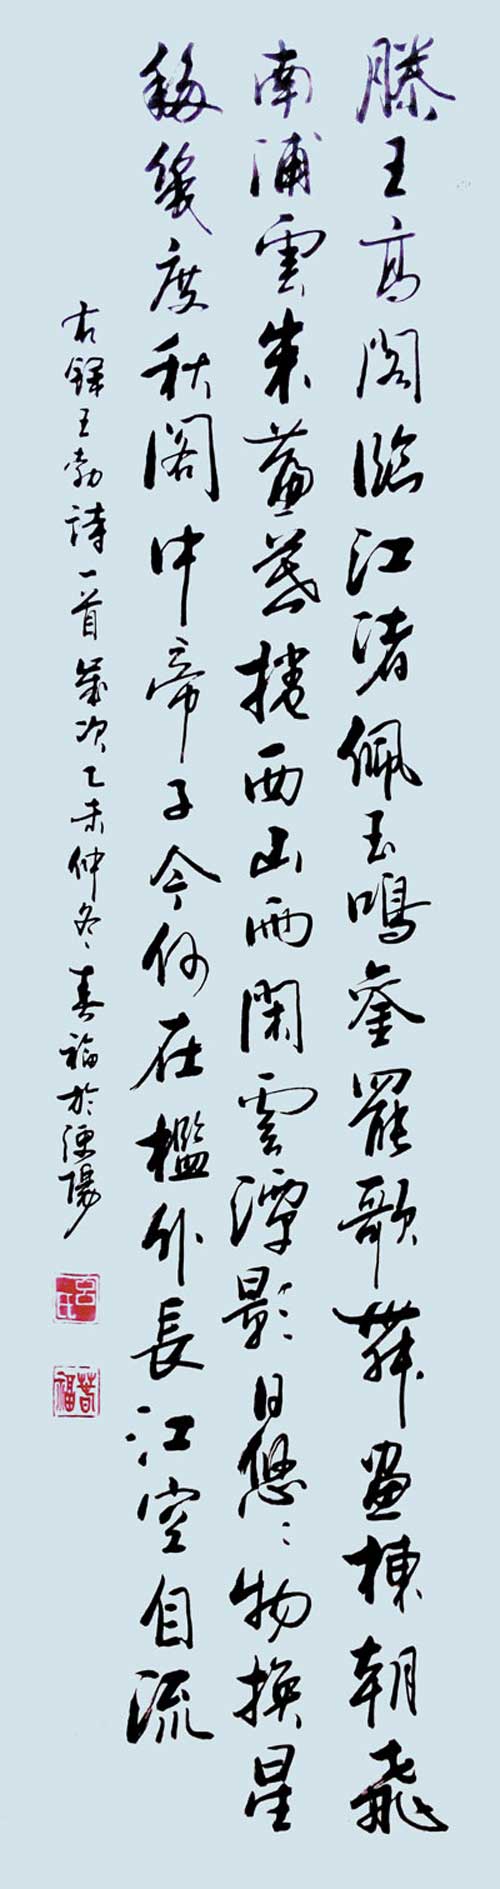 滕王高閣臨江渚佩玉鳴鑾罷歌舞畫棟朝飛
南浦雲朱簾暮捲西山雨閑雲潭影日悠々物換星
移幾度秋閣中帝子今何在檻外長江空自流
右錄王勃詩一首歲次乙未仲冬春福於溧陽
呂氏
春福